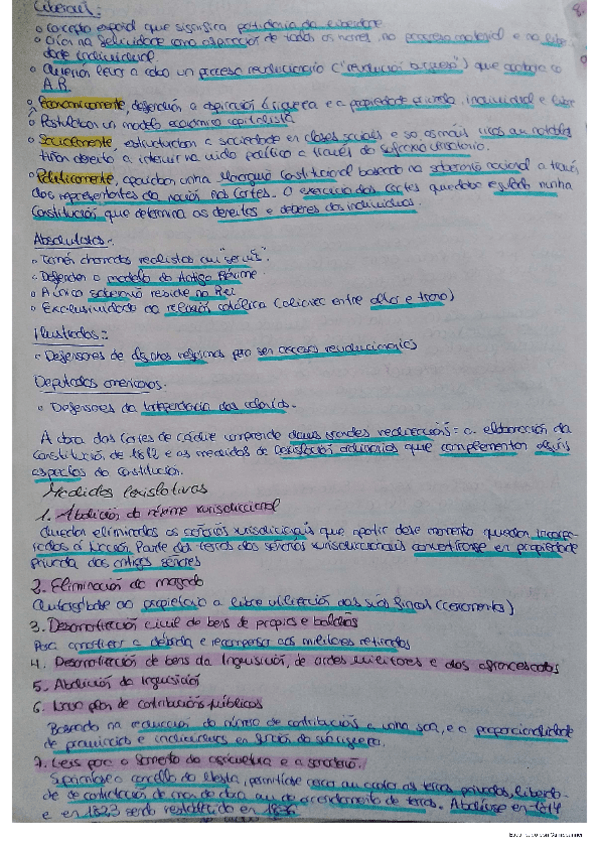 Liberais:
◦ Concepto español que significa partidario da liberdade.
◦ O fin na felicidade como aspiración de todos os homes, no proceso material e na liber-
dade individual.
◦ Querían levar a cabo un proceso revolucionario ("revolución burguesa") que acabara co
A.R.
◦ Economicamente, defendían a aspiración á riqueza e a propiedade privada, individual e libre
◦ Postulaban un modelo económico capitalista
◦ Socialmente, estructuraban a sociedade en clases sociais e só os máis ricos ou notables
tiñan dereito a intervir na vida política a través do sufraxio censitario.
◦ Politicamente, apoiaban unha Monarquía Constitucional baseada na soberanía nacional a través
dos representantes da nación nas Cortes. O exercicio das Cortes quedaba exposto nunha
Constitución que determina os dereitos e deberes dos individuos.
Absolutistas:
◦ Tamén chamados realistas ou "serviís".
◦ Defenden o modelo do Antigo Réxime.
◦ A única soberanía reside no Rei
◦ Exclusividade da relixión católica (alianza entre altar e trono)
Ilustrados:
◦ Defensores de algunhas reformas pero sen excesos revolucionarios
Deputados americanos.
◦ Defensores da Independencia das colonias.
A obra das Cortes de Cádiz comprende dúas grandes realizacións: a elaboración da
Constitución de 1812 e as medidas de lexislación ordinarias que complementan algúns
aspectos da constitución.
Medidas lexislativas
1. Abolición do réxime xurisdiccional
Quedan eliminados os señoríos xurisdiccionais que a partir dese momento quedan incorpo-
rados á Nación. Parte das terras dos señoríos xurisdiccionais convertíronse en propiedade
privada dos antigos señores
2. Eliminación do morgado
Autorízase ao propietario a libre utilización das súas fincas (cercamentos)
3. Desamortización civil de bens de propios e baldíos
Para amortizar a débeda e recompensar aos militares retirados
4. Desamortización de bens da Inquisición, de ordes militares e dos afrancesados
5. Abolición da Inquisición
6. Novo plan de contribucións públicas
Baseado na redución do número de contribucións a unha soa, e a proporcionalidade
de provincias e individuos en función da súa riqueza.
7. Leis para o fomento da agricultura e a gandería.
Suprímese o concello da Mesta, permítese cercar ou acotar as terras privadas, liberda-
de de contratación de man de obra ou de arrendamento de terras. Abolíuse en 1814
e en 1823 sendo restablecido en 1836